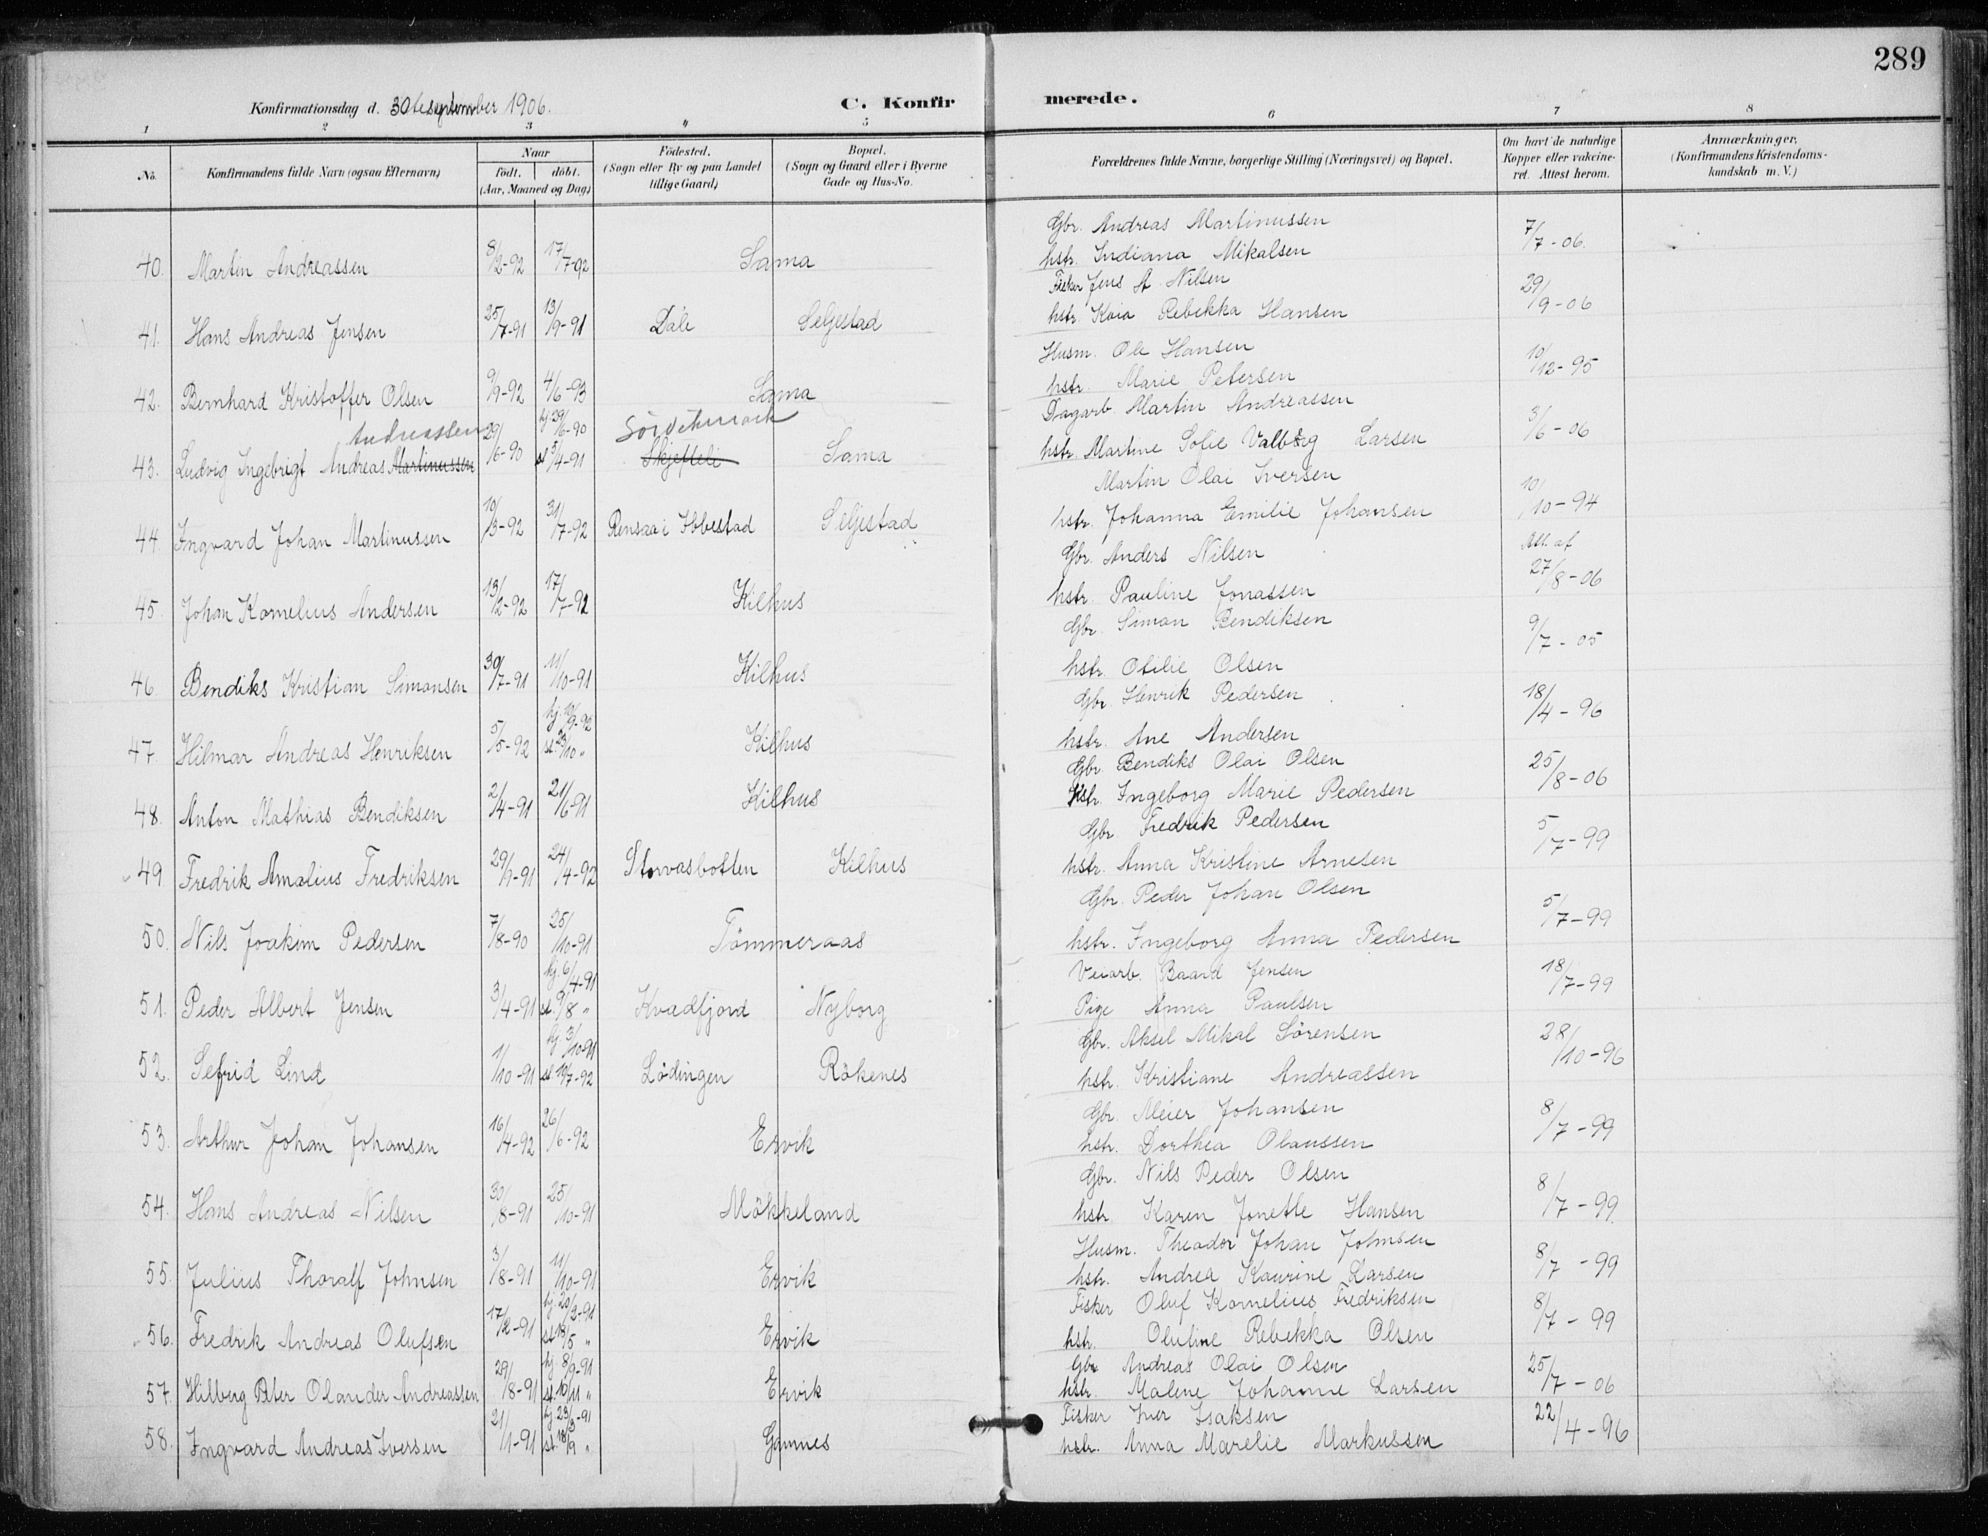 289
Konfirmationsdag d. 30te september 1906.
C. Konfirmerede.
1 2 3 4 5 6 7 8
No. Konfirmandens fulde Navn (ogsaa Efternavn) Naar født. døbt. (Aar, Maaned og Dag) Fødested. (Sogn eller By og paa Landet tillige Gaard) Bopæl. (Sogn og Gaard eller i Byerne Gade og Hus-No. Forældrenes fulde Navne, borgerlige Stilling (Næringsvei) og Bopæl. Om havt de naturlige Kopper eller vakcineret. Attest herom. Anmærkninger, (Konfirmandens Kristendomskundskab m. V.)
Gbr. Andreas Martinussen
40. Martin Andreassen 8/2-92 17/7-92 Sama hstr. Indiana Mikalsen 7/7-06.
Fisker Jens A Nilsen
41. Hans Andreas Jensen 25/7-91 13/9-91 Dale Seljestad hstr Kaia Rebekka Hansen 29/9-06
Husm. Ole Hansen
42. Bernhard Kristoffer Olsen 9/9-92 4/6-93 Sama hstr. Marie Petersen 10/12-95
Andreassen hj. 29/6-90 Dagarb Martin Andreassen
43. Ludvig Ingebrigt Andreas Martinussen 29/6-90 st 5/4-91 Skjefteli Sama hstr. Martine Solie Valborg Larsen 3/6-06
Martin Olai Iversen
44. Ingvard Johan Martinussen 10/3-92 31/7-92 Rensaa i Ibbestad Seljestad hstr. Johanna Emilie Johansen 10/10-94
Gbr. Anders Nilsen Att. af
45. Johan Kornelius Andersen 13/2-92 17/7-92 Kilhus hstr. Pauline Jonassen 27/8-06
Gbr. Simon Bendiksen
46. Bendiks Kristian Simonsen 30/7-91 11/10-91 Kilhus hstr. Otilie Olsen 9/7-05
Gbr. Henrik Pedersen
47. Hilmar Andreas Henriksen 5/5-92 Kilhus hstr. Ane Andersen 18/4-96
Gbr Bendiks Olai Olsen
48. Anton Mathias Bendiksen 2/4-91 21/6-91 Kilhus hstr. Ingeborg Marie Pedersen 25/8-06
Gbr Fredrik Pedersen
49 Fredrik Amalius Fredriksen 24/4-92 Storvasbotten Kilhus hstr. Anna Kristine Arnesen 5/7-99
Gbr. Peder Johan Olsen
50. Nils Joakim Pedersen 7/8-90 25/10-91 Tømmeraas hstr. Ingeborg Anna Pedersen 5/7-99
hj. 6/4-91 Veiarb. Baard Jensen
51. Peder Albert Jensen 3/4-91 st. 9/8 " Kvadfjord Nyborg Pige Anna Paulsen 18/7-99
hj. 3/10-91 Gbr. Aksel Mikal Sørensen
52. Sefrid Lind 1/10-91 st. 10/7-92 Lødingen Røkenes hstr. Kristiane Andreassen 28/10-96
Gbr. Meier Johansen
53. Arthur Johan Johansen 16/4-92 26/6-92 Ervik hstr. Dorthea Olaussen 8/7-99
Gbr. Nils Peder Olsen
54. Hans Andreas Nilsen 30/8-91 25/10-91 Møkkeland hstr Karen Jonette Hansen 8/7-99
Husm. Theodor Johan Johnsen
55. Julius Thoralf Johnsen 3/8-91 11/10-91 Ervik hstr. Andrea Kaurine Larsen 8/7-99
hj. 20/2-91 Fisker Oluf Kornelius Fredriksen
56. Fredrik Andreas Olufsen 17/2-91 st. 18/5 " Ervik hstr. Oluline Rebekka Olsen 8/7-99
hj. 8/9-91 Gbr Andreas Olai Olsen
57. Hilberg Peter Olander Andreassen 29/8-91 st. 10/11 " Ervik hstr. Malene Johanne Larsen 25/7-06
hj 23/3-91 Fisker Iver Isaksen
58. Ingvard Andreas Iversen 21/1-91 st. 18/9 " Gamnes hstr. Anna Marelie Markussen 22/4-96